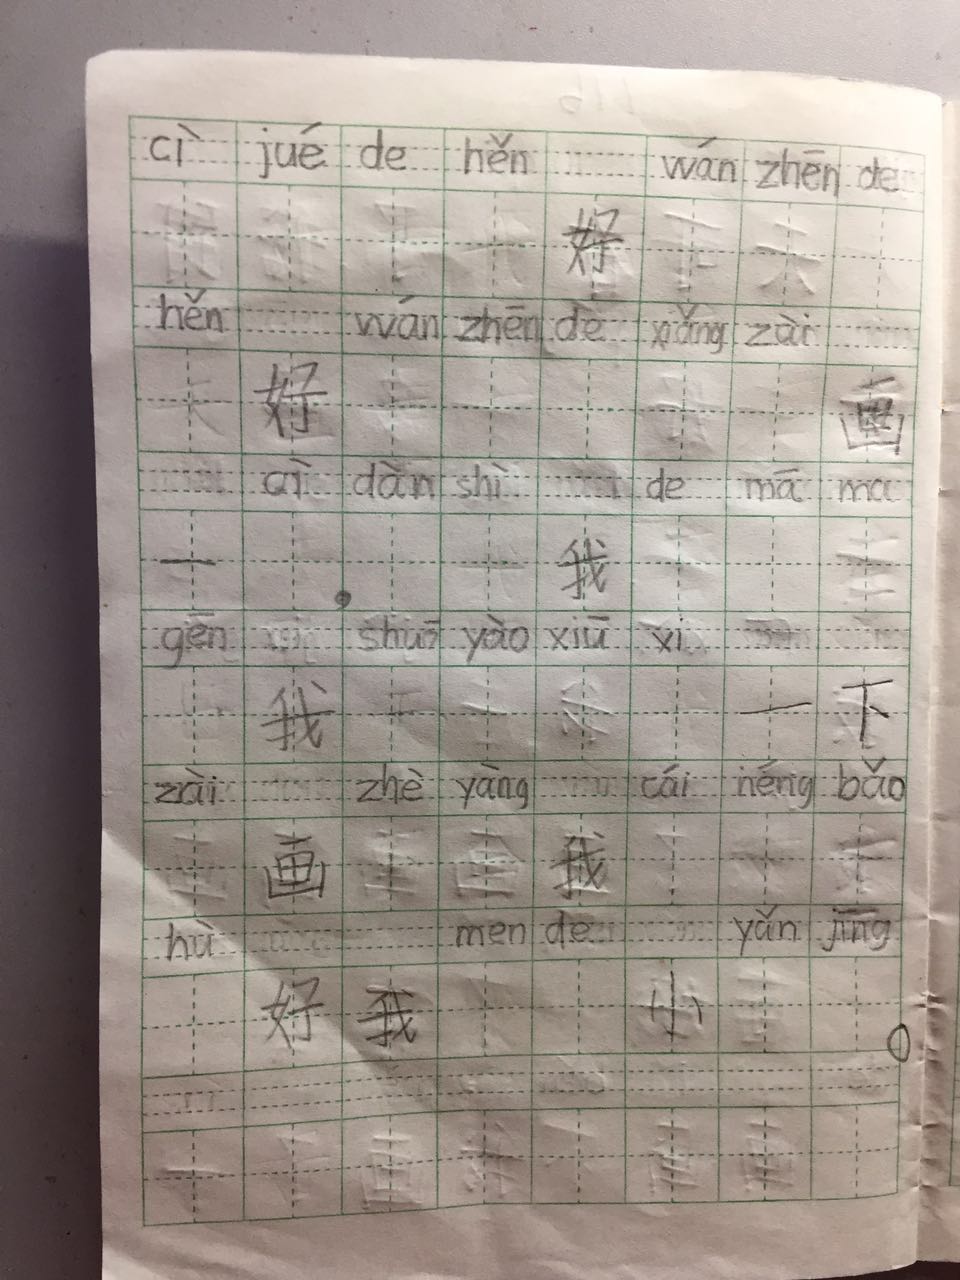 cì jué de hěn wán zhēn de
好
hěn wán zhēn de xiǎng zài
好 画
cì dàn shì de mā ma
一 , 我
gēn shuō yào xiū xi
我 一 下
zài zhè yàng cái néng bǎo
画 我
hù men de yǎn jīng
好 我 小 。